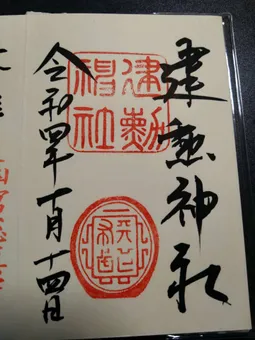 建勲神社
建勲神社
令和四年十月十四日